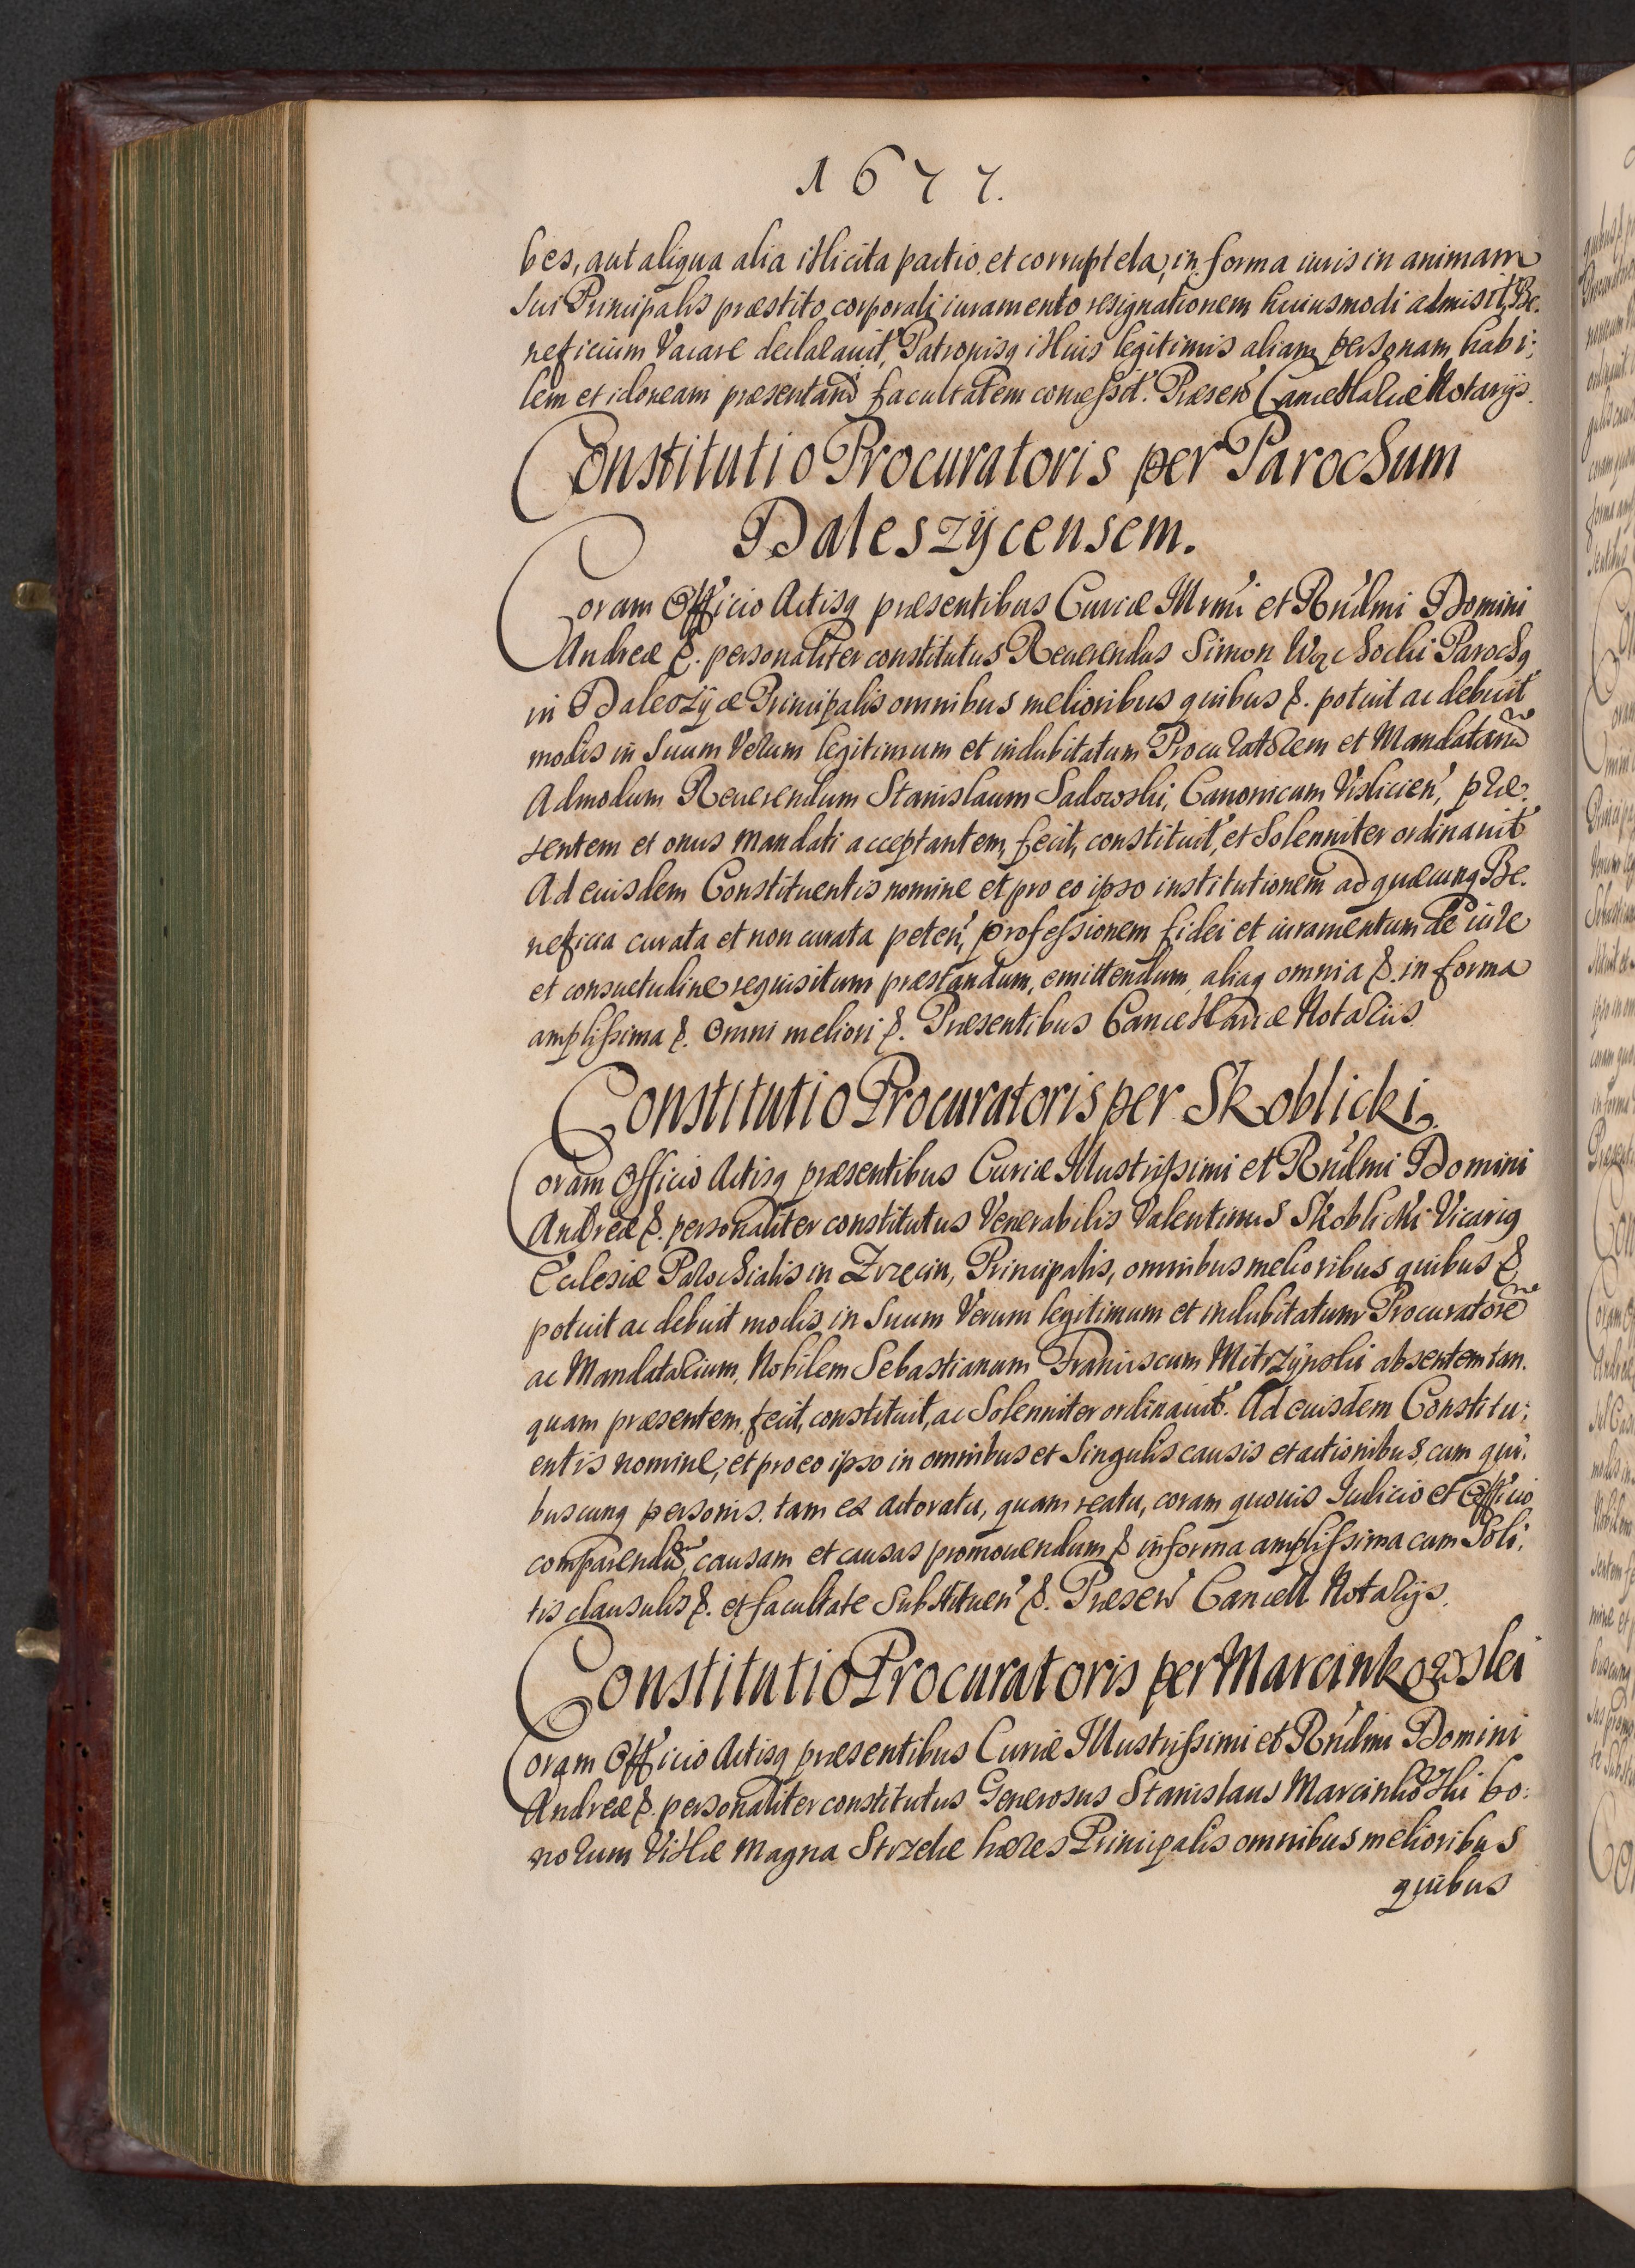 1677.
bes, aut aliqua alia illicita pactio et corruptela, in forma iuris in animam
sui Principalis præstito corporali iuramento resignationem huiusmodi admisit, Be:
neficium Vacare declarauit, Patronisq illius legitimis aliam personam habi:
lem et idoneam præsentand facultatem concessit. Præsen Cancellariæ Notarijs.
Constitutio Procuratoris per Parochum
Daleszÿcensem.
Coram Officio Actisq præsentibus Curiæ Illrmi et Rndmi Domini
Andreæ &. personaliter constitutus Reuerendus Simon Parochq
in Daleszÿce Principalis omnibus melioribus quibus &. potuit ac debuit
modis in Suum Verum legitimum et indubitatum Procuratorem et Mandatariu
Admodum Reuerendum Stanislaum Sadowski, Canonicum Vislicien, præ:
sentem et onus mandati acceptantem, fecit, constituit, et Solenniter ordinauit
Ad euisdem Constituentis nomine et pro eo ipso institutionem ad quæcunq Be:
neficia curata et non curata peten, professionem fidei et iuramentum de iure
et consuetudine requisitum præstandum, emittendum, aliaq omnia &. in forma
amplissima &. omni meliori &. Præsentibus Cancellariæ Notariis
Constitutio Procuratoris per Skoblicki.
Coram Officio Actisq præsentibus Curiæ Illustrissimi et Rndmi Domini
Andreæ &. personaliter constitutus Venerabilis Valentinus Skoblicki Vicariq
Ecclesiæ Parochialis in Zrzecin, Principalis, omnibus melioribus quibus &
potuit ac debuit modis in Suum Verum legitimum et indubitatum Procuratore
ac Mandatarium, Nobilem Sebastianum Franciscum Mitrzÿnski absentem tan:
quam præsentem, fecit, constituit, ac Solenniter ordinauit. Ad euisdem Constitu:
entis nomine, et pro eo ipso in omnibus et Singulis causis et actionibus, cum qui:
buscunq personis. tam ex actoratu, quam reatu, coram quouis Iudicio et Officio
comparendu, causam et causas promouendum & in forma amplissima cum Soli:
tis clausulis &. et facultate Substituen &. Præsen Cancell Notarijs.
Constitutio Procuratoris per Marcinkowski
Coram Officio Actisq præsentibus Curiæ Illustrissimi et Rndmi Domini
Andreæ &. personaliter constitutus Generosus Stanislaus Marcinkowski bo:
norum Villæ Magna Strzelce hæres Principalis omnibus melioribus
quibus